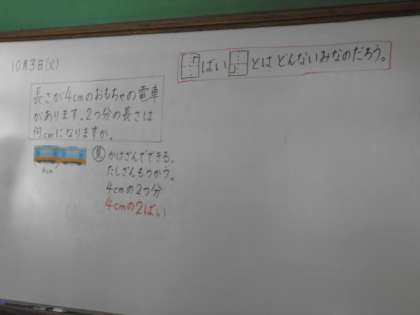 10月3日(火)
ばい とは どんないみなのだろう。
長さが4cmのおもちゃの電車
があります。2つ分の長さは
何cmになりますか。
4cm
見 かけざんでできる。
たしざんもつかう。
4cmの2つ分
4cmの2ばい